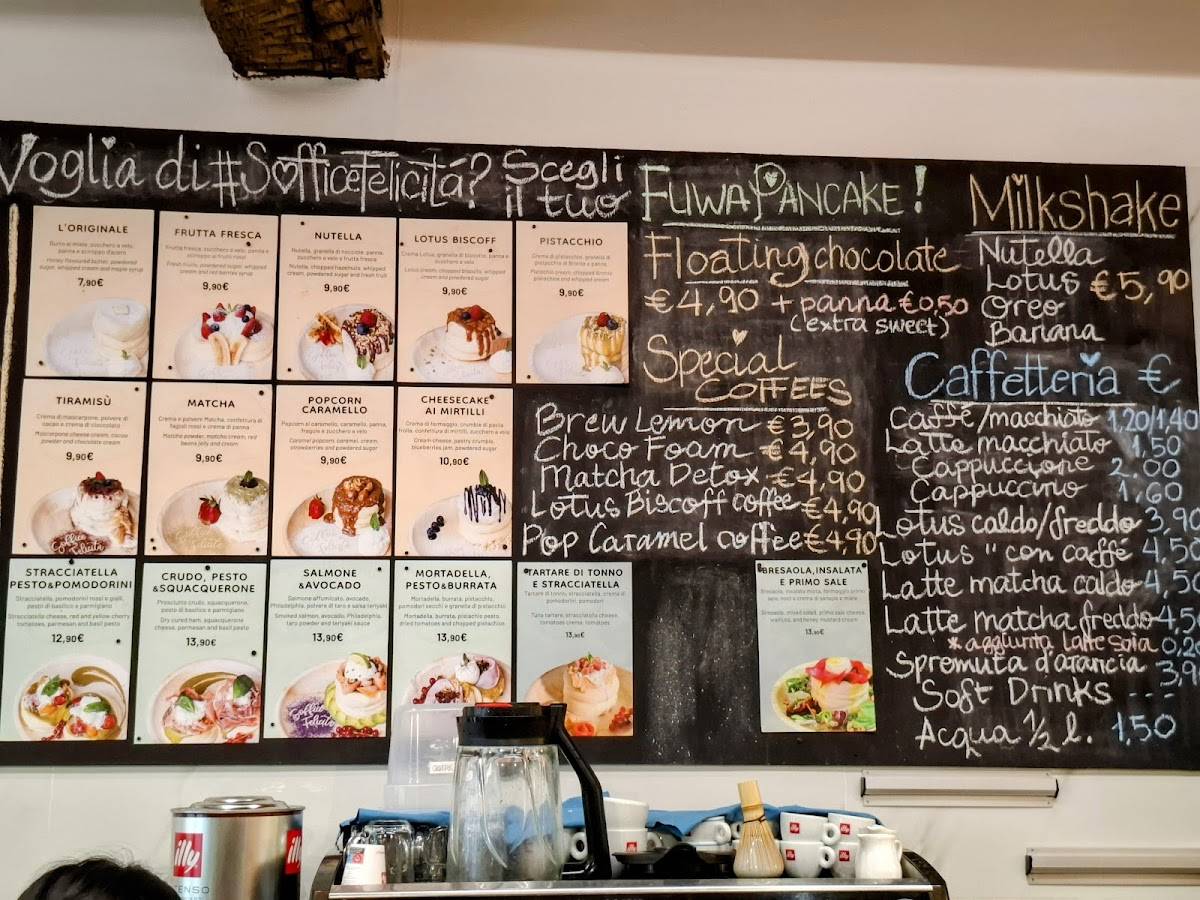 Voglia di #SofficeFelicità? Scegli
il tuo
FUWA PANCAKE!
L'ORIGINALE
Burro al miele, zucchero a velo,
panna e sciroppo d'acero
Honey flavoured butter, powdered
sugar, whipped cream and maple syrup
7,90€
FRUTTA FRESCA
Frutta fresca, zucchero a velo, panna e
sciroppo ai frutti rossi
Fresh fruits, powdered sugar, whipped
cream and red berries syrup
9,90€
NUTELLA
Nutella, granella di nocciole, panna,
zucchero a velo e frutta fresca
Nutella, chopped hazelnuts, whipped
cream, powdered sugar and fresh fruit
9,90€
LOTUS BISCOFF
Crema Lotus, granella di biscotto, panna
e zucchero a velo
Lotus cream, chopped biscuits, whipped
cream and powdered sugar
9,90€
PISTACCHIO
Crema di pistacchio, granella di
pistacchio di Bronte e panna
Pistachio cream, chopped Bronte
pistachios and whipped cream
9,90€
TIRAMISÙ
Crema di mascarpone, polvere di
cacao e crema di cioccolato
Mascarpone cheese cream, cocoa
powder and chocolate cream
9,90€
Soffice Felicità
MATCHA
Crema e polvere Matcha, confettura di
fagioli rossi e crema di panna
Matcha powder, matcha cream, red
beans jelly and cream
9,90€
POPCORN
CARAMELLO
Popcorn al caramello, caramello, panna,
fragole e zucchero a velo
Caramel popcorn, caramel, cream,
strawberries and powdered sugar
9,90€
CHEESECAKE
AI MIRTILLI
Crema di formaggio, crumble di pasta
frolla, confettura di mirtilli, zucchero a velo
Cream cheese, pastry crumble,
blueberries jam, powdered sugar
10,90€
STRACCIATELLA
PESTO&POMODORINI
Stracciatella, pomodorini rossi e gialli,
pesto di basilico e parmigiano
Stracciatella cheese, red and yellow cherry
tomatoes, parmesan and basil pesto
12,90€
CRUDO, PESTO
&SQUACQUERONE
Prosciutto crudo, squacquerone,
pesto di basilico e parmigiano
Dry cured ham, squacquerone
cheese, parmesan and basil pesto
13,90€
SALMONE
&AVOCADO
Salmone affumicato, avocado,
Philadelphia, polvere di taro e salsa teriyaki
Smoked salmon, avocado, Philadelphia,
taro powder and teriyaki sauce
13,90€
Soffice Felicità
MORTADELLA,
PESTO&BURRATA
Mortadella, burrata, pomodori
secchi e granella di pistacchio
Mortadella, burrata cheese, pesto,
dried tomatoes and chopped pistachios
13,90€
TARTARE DI TONNO
E STRACCIATELLA
Tartare di tonno, stracciatella, crema di
pomodorini, pomodori
Tuna tartare, stracciatella cheese,
tomatoes crema, tomatoes
13,90€
BRESAOLA, INSALATA
E PRIMO SALE
13,90€
Floating chocolate
€4,90 + panna €0,50
(extra sweet)
Special
COFFEES
Brew Lemon €3,90
Choco Foam €4,90
Matcha Detox €4,90
Lotus Biscoff coffee €4,90
Pop Caramel coffee €4,90
Milkshake
Nutella
Lotus €5,90
Oreo
Banana
Caffetteria €
Caffè/macchiato 1,20/1,40
Latte macchiato 1,50
Cappuccione 2,00
Cappuccino 1,60
Lotus caldo/freddo 3,90
Lotus " con caffè 4,50
Latte matcha caldo 4,50
Latte matcha freddo 4,50
*aggiunta latte soia 0,20
Spremuta d'arancia 3,90
Soft Drinks ---
Acqua ½ l. 1,50
illy
illy
illy
illy